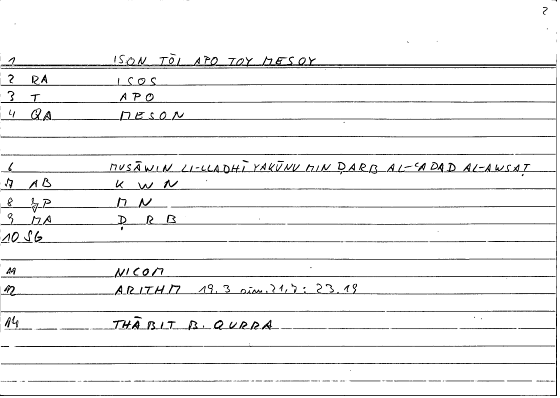 2
1 ISON TŌI APO TOY MESOY
2 RA ISOS
3 T APO
4 QA MESON
6 MUSĀWIN LI-LLADHĪ YAKŪNU MIN ḌARB AL-ʿADAD AL-AWSAṬ
7 AB K W N
8 P M N
9 MA Ḍ R B
10 SG
11 NICOM
12 ARITHM 19.3 21,7 : 23.19
14 THĀBIT B. QURRA